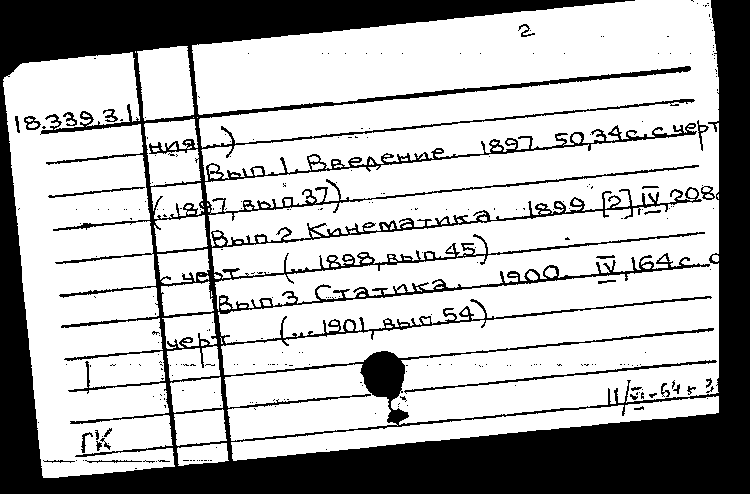 2
18.339.3.1.
ния...)
Вып.1. Введение. 1897. 50,34с. с черт
(...1897, вып.37).
Вып.2 Кинематика. 1899 [2],IV,208с
с черт. (...1898, вып.45)
Вып.3 Статика. 1900. IV,164с. с
черт. (...1901, вып.54).
ГК
11/VI-64г.